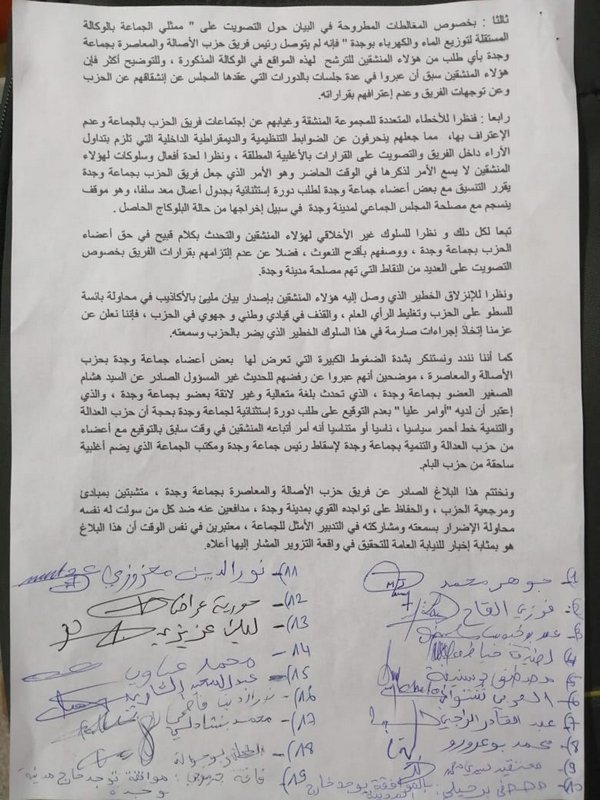 ثالثا : بخصوص المغالطات المطروحة في البيان حول التصويت على " ممثلي الجماعة بالوكالة
المستقلة لتوزيع الماء والكهرباء بوجدة " فإنه لم يتوصل رئيس فريق حزب الأصالة والمعاصرة بجماعة
وجدة بأي طلب من هؤلاء المنشقين للترشح لهذه المواقع في الوكالة المذكورة ، وللتوضيح أكثر فإن
هؤلاء المنشقين سبق أن عبروا في عدة جلسات بالدورات التي عقدها المجلس عن إنشقاقهم عن الحزب
وعن توجهات الفريق وعدم إعترافهم بقراراته.
رابعا : فنظرا للأخطاء المتعددة للمجموعة المنشقة وغيابهم عن إجتماعات فريق الحزب بالجماعة وعدم
الإعتراف بها، مما جعلهم ينحرفون عن الضوابط التنظيمية والديمقراطية الداخلية التي تلزم بتداول
الأراء داخل الفريق والتصويت على القرارات بالأغلبية المطلقة ، ونظرا لعدة أفعال وسلوكات لهؤلاء
المنشقين لا يسع الأمر لذكرها في الوقت الحاضر وهو الأمر الذي جعل فريق الحزب بجماعة وجدة
يقرر التنسيق مع بعض أعضاء جماعة وجدة لطلب دورة إستثنائية بجدول أعمال معد سلفا، وهو موقف
ينسجم مع مصلحة المجلس الجماعي لمدينة وجدة في سبيل إخراجها من حالة البلوكاج الحاصل .
تبعا لكل دلك و نظرا للسلوك غير الأخلاقي لهؤلاء المنشقين والتحدث بكلام قبيح في حق أعضاء
الحزب بجماعة وجدة ، ووصفهم بأقدح النعوث ، فضلا عن عدم إلتزامهم بقرارات الفريق بخصوص
التصويت على العديد من النقاط التي تهم مصلحة مدينة وجدة.
ونظرا للإنزلاق الخطير الذي وصل إليه هؤلاء المنشقين بإصدار بيان مليئ بالأكاذيب في محاولة بائسة
للسطو على الحزب وتغليط الرأي العام ، والقذف في قيادي وطني و جهوي في الحزب ، فإننا نعلن عن
عزمنا إتخاذ إجراءات صارمة في هذا السلوك الخطير الذي يضر بالحزب وسمعته.
كما أننا نندد ونستنكر بشدة الضغوط الكبيرة التي تعرض لها بعض أعضاء جماعة وجدة بحزب
الأصالة والمعاصرة ، موضحين أنهم عبروا عن رفضهم للحديث غير المسؤول الصادر عن السيد هشام
الصغير العضو بجماعة وجدة ، الذي تحدث بلغة متعالية وغير لائقة بعضو بجماعة وجدة ، والذي
إعتبر أن لديه "أوامر عليا " بعدم التوقيع على طلب دورة إستثنائية لجماعة وجدة بحجة أن حزب العدالة
والتنمية خط أحمر سياسيا ، ناسيا أو متناسيا أنه أمر أتباعه المنشقين في وقت سابق بالتوقيع مع أعضاء
من حزب العدالة والتنمية بجماعة وجدة لإسقاط رئيس جماعة وجدة ومكتب الجماعة الذي يضم أغلبية
ساحقة من حزب البام.
ونختتم هذا البلاغ الصادر عن فريق حزب الأصالة والمعاصرة بجماعة وجدة ، متشبتين بمبادئ
ومرجعية الحزب ، والحفاظ على تواجده القوي بمدينة وجدة ، مدافعين عنه ضد كل من سولت له نفسه
محاولة الإضرار بسمعته ومشاركته في التدبير الأمثل للجماعة ، معتبرين في نفس الوقت أن هذا البلاغ
هو بمثابة إخبار للنيابة العامة للتحقيق في واقعة التزوير المشار إليها أعلاه.
1- جوهر محمد
2- فوزي القاح
3- عمر
4- لطيفة
5- مصطفى
6- العربي
7- عبد القادر
8- محمد بوعرورو
9-
10- مصطفى
11- نور الدين
12- حورية
13- ليلى عزيزي
14- محمد
15- عبد السعيد
16-
17- محمد
18-
19- : موافقة توجد خارج مدينة
وجدة